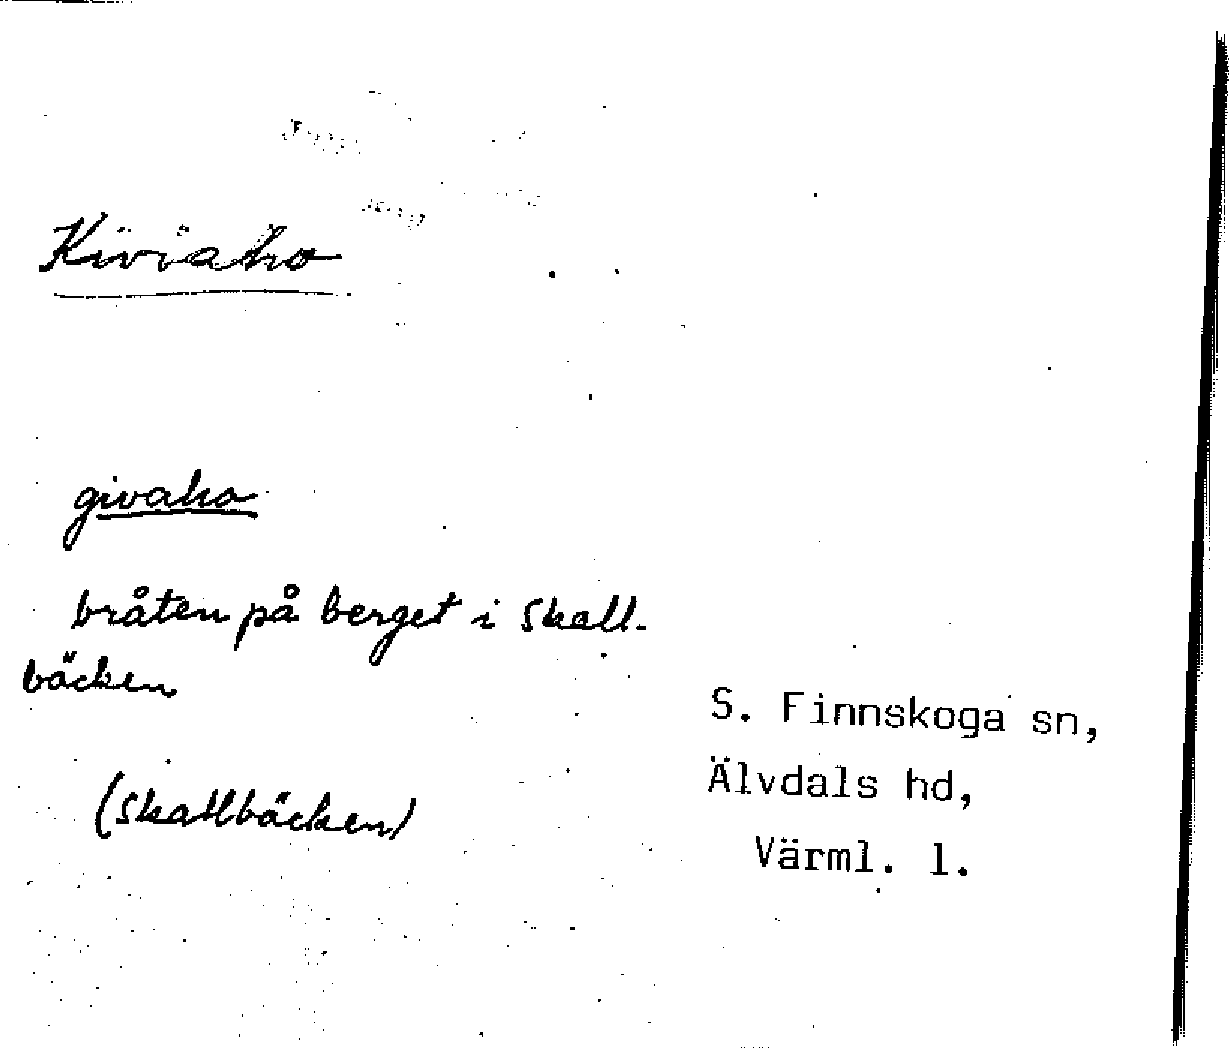 Kiviaho
givaho
bråten på berget i Skall-
bäcken
(Skallbäcken)
S. Finnskoga sn,
Älvdals hd,
Värml. l.